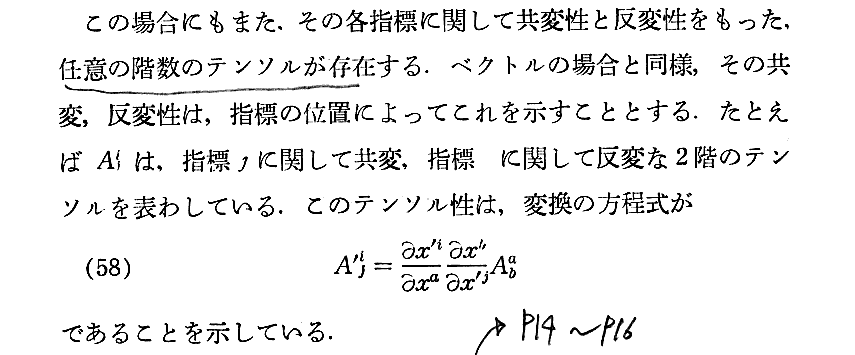 この場合にもまた，その各指標に関して共変性と反変性をもった，
任意の階数のテンソルが存在する．ベクトルの場合と同様，その共
変，反変性は，指標の位置によってこれを示すこととする．たとえ
ば A は，指標 j に関して共変，指標 に関して反変な2階のテン
ソルを表わしている．このテンソル性は，変換の方程式が
(58) A'^i_j = ∂x'^i/∂x^a ∂x/∂x'^j A^a_b
であることを示している．
→ P14 〜P16